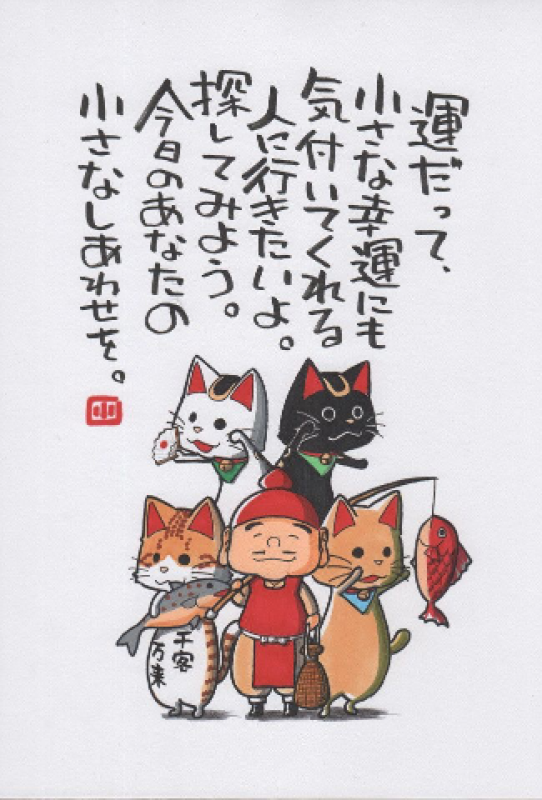 運だって、
小さな幸運にも
気付いてくれる
人に行きたいよ。
探してみよう。
今日のあなたの
小さなしあわせを。
千客
万来